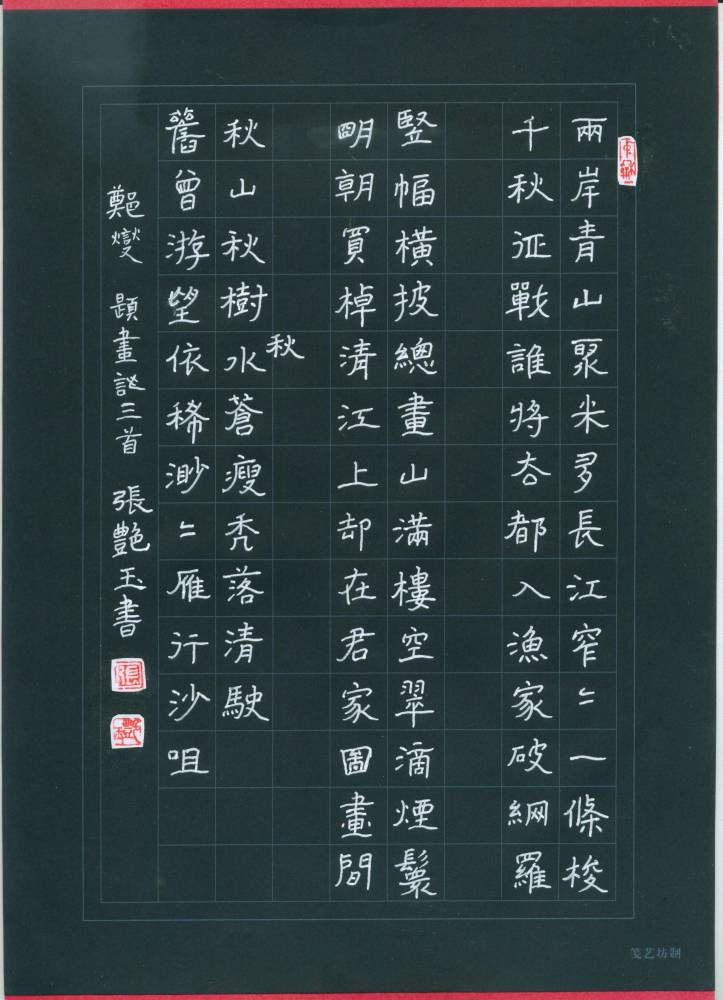 兩岸青山聚米多長江窄〻一條梭
千秋征戰誰將去都入漁家破網羅
豎幅橫披總畫山滿樓空翠滴煙鬟
明朝買棹清江上却在君家圖畫間
秋
秋山秋樹水蒼瘦禿落清駛
舊曾游望依稀渺〻雁行沙咀
鄭燮 題畫詩三首 張艷玉書
笺艺坊制